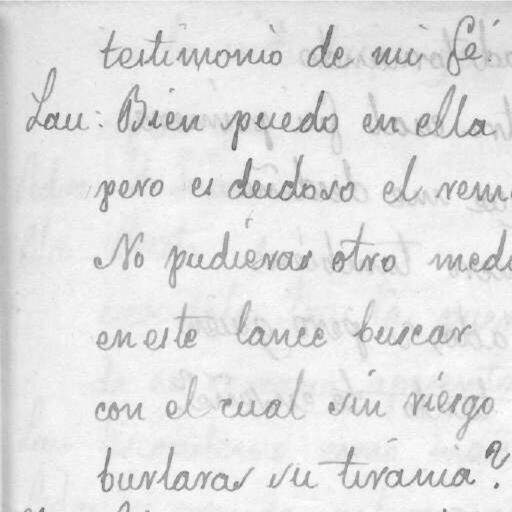 testimonio de mi fé.
Lau: Bien puedo en ella
pero es deudoso el rem
No pudieras otro med
en este lance buscar
con el cual sin riesgo
burlaras su tirania?